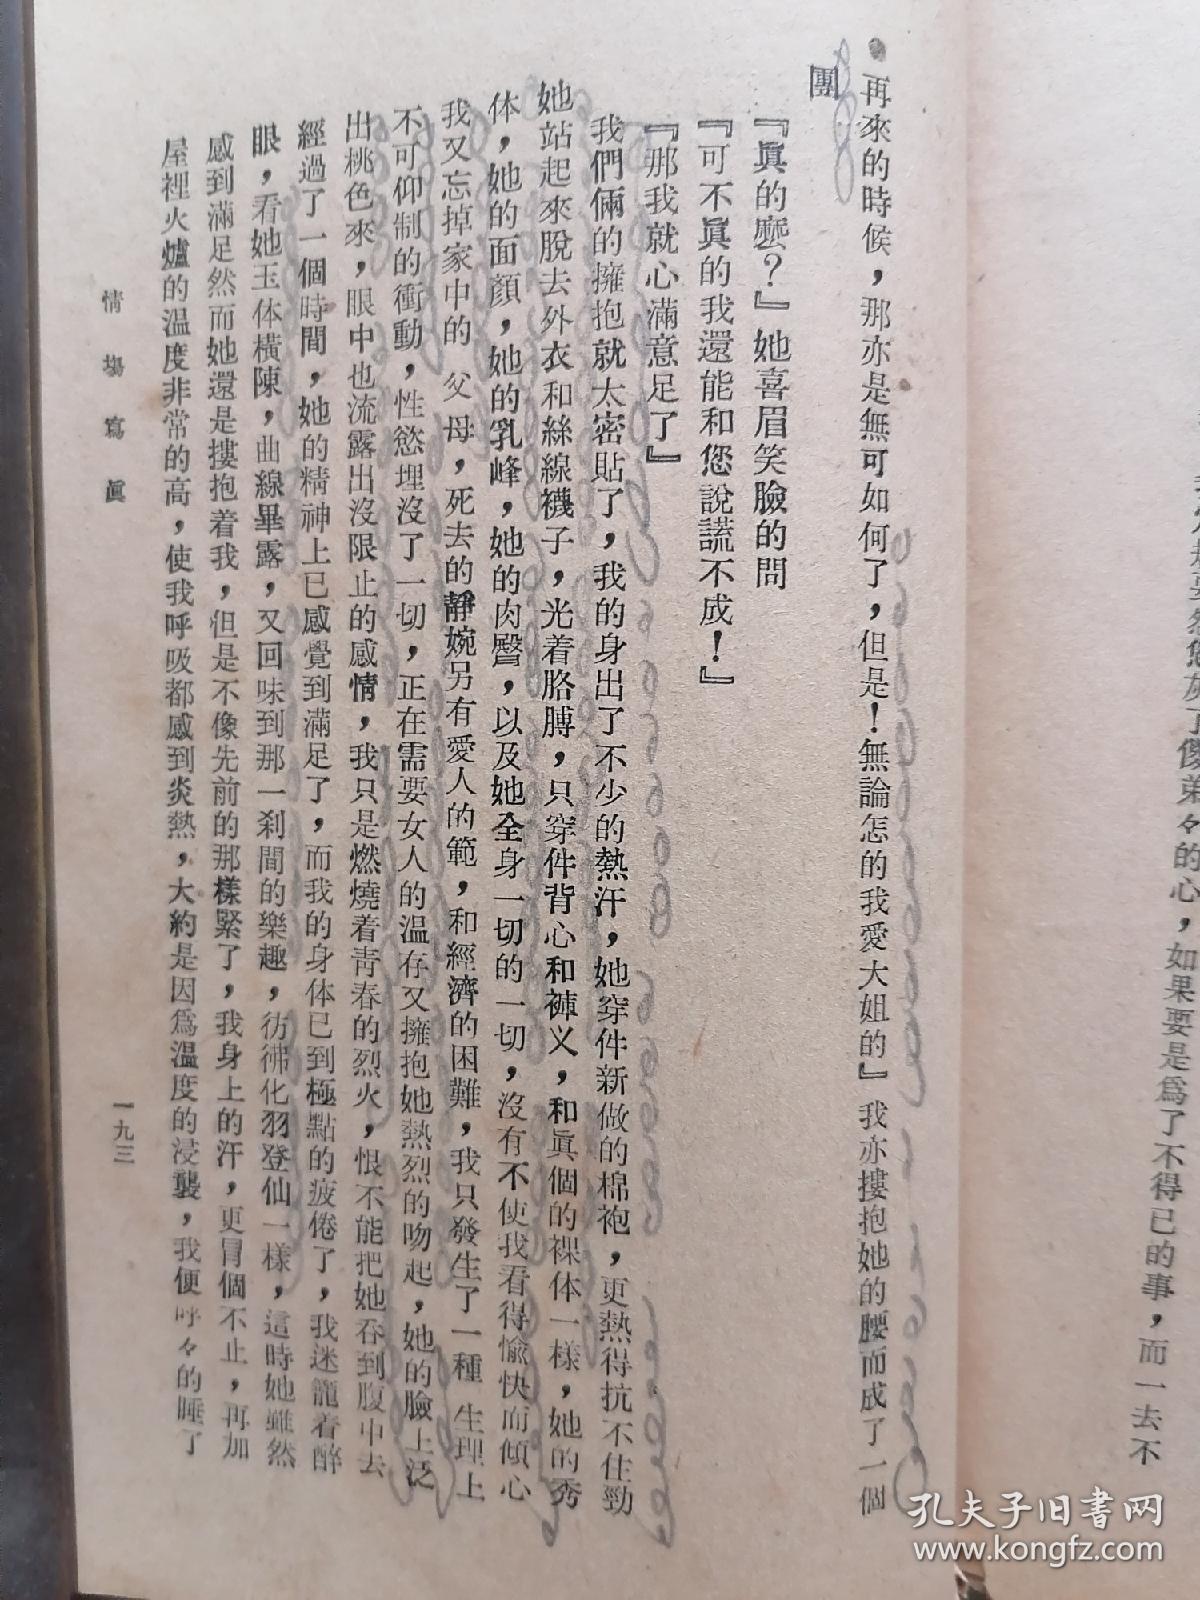 我亦是要祭您好了傻弟々的心，如果要是爲了不得已的事，而一去不
再來的時候，那亦是無可如何了，但是！無論怎的我愛大姐的』我亦摟抱她的腰而成了一個
團
『眞的麽？』她喜眉笑臉的問
『可不眞的我還能和您說謊不成！』
『那我就心滿意足了』
我們倆的擁抱就太密貼了，我的身出了不少的熱汗，她穿件新做的棉袍，更熱得抗不住勁
她站起來脫去外衣和絲線襪子，光着胳膊，只穿件背心和褲义，和眞個的裸体一樣，她的秀
体，她的面顏，她的乳峰，她的肉臀，以及她全身一切的一切，沒有不使我看得愉快而傾心
我又忘掉家中的父母，死去的靜婉另有愛人的範，和經濟的困難，我只發生了一種生理上
不可仰制的衝動，性慾埋沒了一切，正在需要女人的温存又擁抱她熱烈的吻起，她的臉上泛
出桃色來，眼中也流露出沒限止的感情，我只是燃燒着靑春的烈火，恨不能把她吞到腹中去
經過了一個時間，她的精神上已感覺到滿足了，而我的身体已到極點的疲倦了，我迷籠着醉
眼，看她玉体橫陳，曲線畢露，又回味到那一刹間的樂趣，彷彿化羽登仙一樣，這時她雖然
感到滿足然而她還是摟抱着我，但是不像先前的那樣緊了，我身上的汗，更冒個不止，再加
屋裡火爐的温度非常的高，使我呼吸都感到炎熱，大約是因爲温度的浸襲，我便呼々的睡了
情場寫眞
一九三
孔夫子旧书网
www.kongfz.com